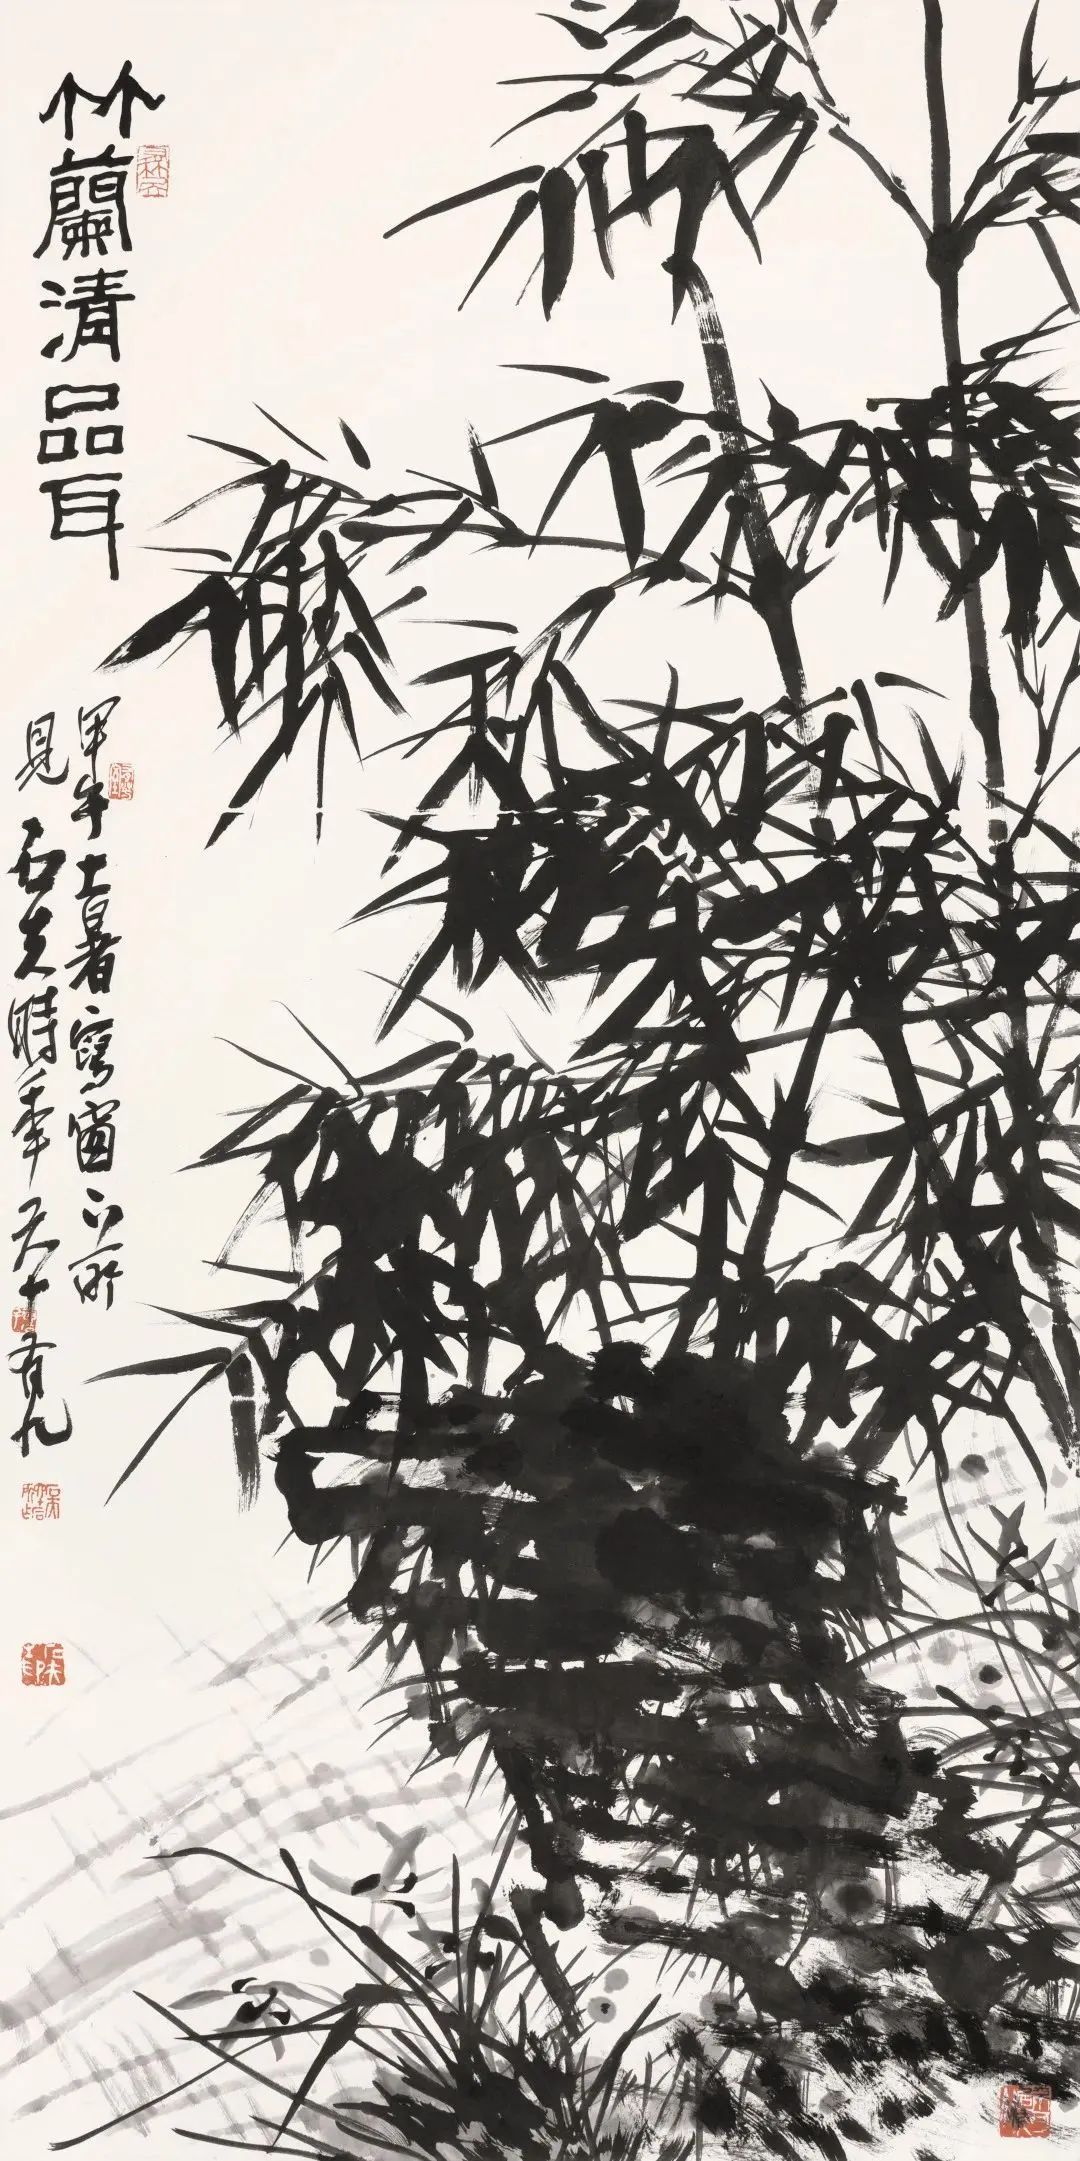 竹蘭清品耳
甲午大暑寫窗下所
見石夫時年六十有九